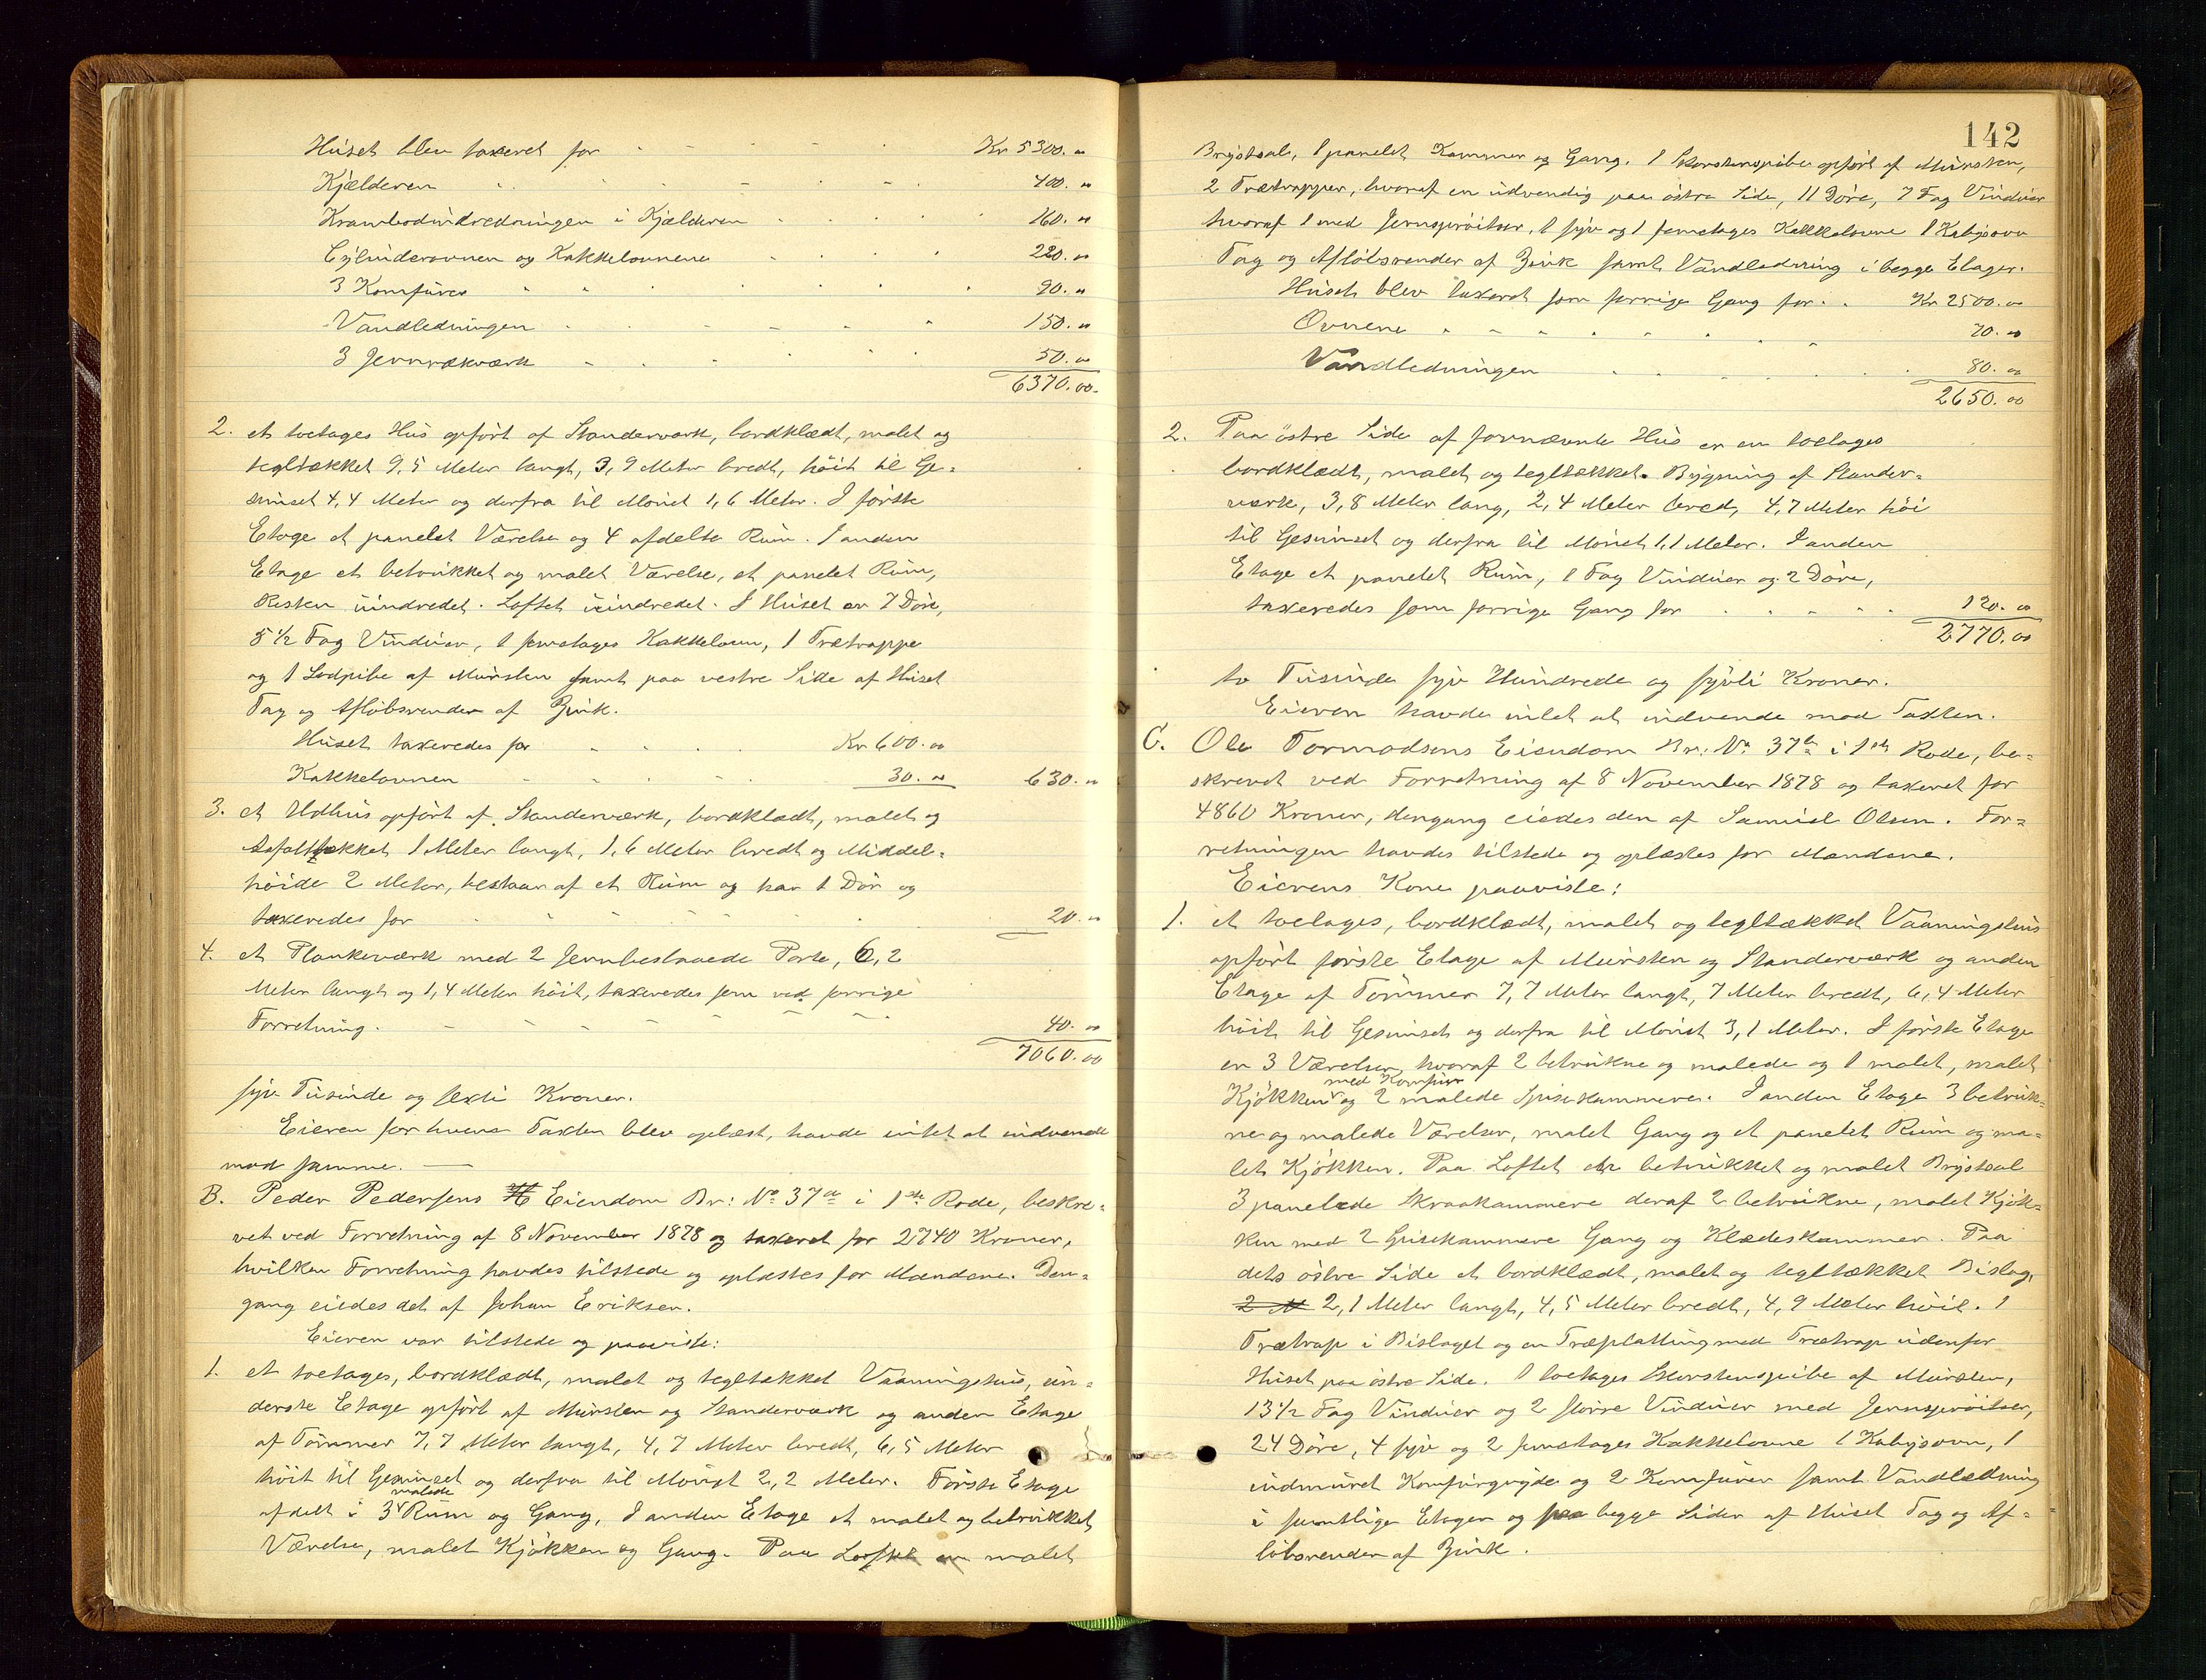 Huset blev taxeret for - - - - - Kr 5300. "
Kjælderen - - - - - 400. "
Krambodindredningen i Kjælderen - - - - 160. "
Cylinderovnen og Kakkelovnene - - - - 220. "
3 Komfurer - - - - - 90. "
Vandledningen - - - - - 150. "
3 Jernrækværk - - - - - 50. "
6370.00.
2. et toetages Hus opført af Standerværk, bordklædt, malet og
tegltækket 9,5 Meter langt, 3,9 Meter bredt, høit til Ge-
simset 4,4 Meter og derfra til Mønet 1,6 Meter. I første
Etage et panelet Værelse og 4 afdelte Rum. I anden
Etage et betrukket og malet Værelse, et panelet Rum,
Resten uindredet. Loftet uindredet. I Huset er 7 Døre,
5 1/2 Fag Vinduer, 1 femetages Kakkelovn, 1 Trætrappe
og 1 Lodpibe af Mursten samt paa vestre Side af Huset
Tag og Afløbsrender af Zink.
Huset taxeredes for - - - - Kr 600.00
Kakkelovnen - - - - 30. " 630. "
3. et Udhus opført af Standerværk, bordklædt, malet og
Asfalttækket 1 Meter langt, 1,6 Meter bredt og Middel-
høide 2 Meter, bestaar af et Rum og har 1 Dør og
taxeredes for - - - - - 20. "
4. et Plankeværk med 2 Jernbeslaaede Porte, 6,2
Meter langt og 1,4 Meter høit, taxeredes som ved forrige
Forretning. - - - - - 40. "
7060.00
syv Tusinde og sexti Kroner.
Eieren for hvem Taxten blev oplæst, havde intet at indvende
mod samme. —
B. Peder Pedersens Eiendom Br: No 37a i 1ste Rode, beskre-
vet ved Forretning af 8 November 1878 og taxeret for 2740 Kroner,
hvilken Forretning havdes tilstede og oplæstes for Mændene. Den-
gang eiedes det af Johan Eriksen.
Eieren var tilstede og paaviste:
1. et toetages, bordklædt, malet og tegltækket Vaaningshus, un-
derste Etage opført af Mursten og Standerværk og anden Etage
af Tømmer 7,7 Meter langt, 4,7 Meter bredt, 6,5 Meter
høit til Gesimset og derfra til Mønet 2,2 Meter. Første Etage
malede
afdelt i 3 Rum og Gang, I anden Etage et malet og betrukket
Værelse, malet Kjøkken og Gang. Paa Loftet er malet
142
Brystsal, 1 panelet Kammer og Gang. 1 Skorstenspibe opført af Mursten,
2 Trætrapper, hvoraf en udvendig paa østre Side, 11 Døre, 7 Fag Vinduer
hvoraf 1 med Jernsprøitser, 1 syv og 1 femetages Kakkelovne 1 Kabysovn
Tag og Afløbsrender af Zink samt Vandledning i begge Etager.
Huset blev taxeret som forrige Gang for - - Kr 2500.00
Ovnene - - - - - - 70. "
Vandledningen - - - - - 80. "
2650.00
2. Paa østre Side af fornævnte Hus er en toetages
bordklædt, malet og tegltækket Bygning af Stander-
værk, 3,8 Meter lang, 2,4 Meter bred, 4,7 Meter høi
til Gesimset og derfra til Mønet 1,1 Meter. I anden
Etage et panelet Rum, 1 Fag Vinduer og 2 Døre,
taxeredes som forrige Gang for - - - - 120. "
2770.00
to Tusinde syv Hundrede og sytti Kroner.
Eieren havde intet at indvende mod Taxten.
C. Ole Tormodsens Eiendom Br: No 37b i 1ste Rode, be-
skrevet ved Forretning af 8 November 1878 og taxeret for
4860 Kroner, dengang eiedes den af Samuel Olsen. For-
retningen havdes tilstede og oplæstes for Mændene.
Eierens Kone paaviste:
1. et toetages, bordklædt, malet og tegltækket Vaaningshus
opført første Etage af Mursten og Standerværk og anden
Etage af Tømmer 7,7 Meter langt, 7 Meter bredt, 6,4 Meter
høit til Gesimset og derfra til Mønet 3,1 Meter. I første Etage
er 3 Værelser, hvoraf 2 betrukne og malede og 1 malet, malet
med Komfur
Kjøkken og 2 malede Spisekammere. I anden Etage 3 betruk-
ne og malede Værelser, malet Gang og et panelet Rum og ma-
let Kjøkken. Paa Loftet er betrukket og malet Brystsal
3 panelede Skraakammere deraf 2 betrukne, malet Kjøk-
ken med 2 Spisekammere Gang og Klædeskammer. Paa
dets østre Side et bordklædt, malet og tegltækket Bislag,
2 M 2,1 Meter langt, 4,5 Meter bredt, 4,9 Meter høit. 1
Trætrap i Bislaget og en Træplatting med Trætrap udenfor
Huset paa østre Side. 1 toetages Skorstenspibe af Mursten,
13 1/2 Fag Vinduer og 2 større Vinduer med Jernsprøitser,
24 Døre, 4 syv og 2 femetages Kakkelovne 1 Kabysovn, 1
indmuret Komfurgryde og 2 Komfurer samt Vandledning
i samtlige Etager og paa begge Sider af Huset Tag og Af-
løbsrender af Zink.